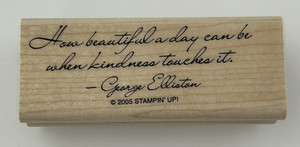 How beautiful a day can be
when kindness touches it.
– George Elliston
© 2005 STAMPIN' UP!